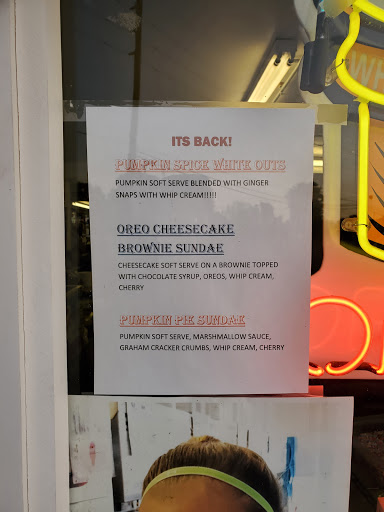 ITS BACK!
PUMPKIN SPICE WHITE OUTS
PUMPKIN SOFT SERVE BLENDED WITH GINGER
SNAPS WITH WHIP CREAM!!!!!
OREO CHEESECAKE
BROWNIE SUNDAE
CHEESECAKE SOFT SERVE ON A BROWNIE TOPPED
WITH CHOCOLATE SYRUP, OREOS, WHIP CREAM,
CHERRY
PUMPKIN PIE SUNDAE
PUMPKIN SOFT SERVE, MARSHMALLOW SAUCE,
GRAHAM CRACKER CRUMBS, WHIP CREAM, CHERRY